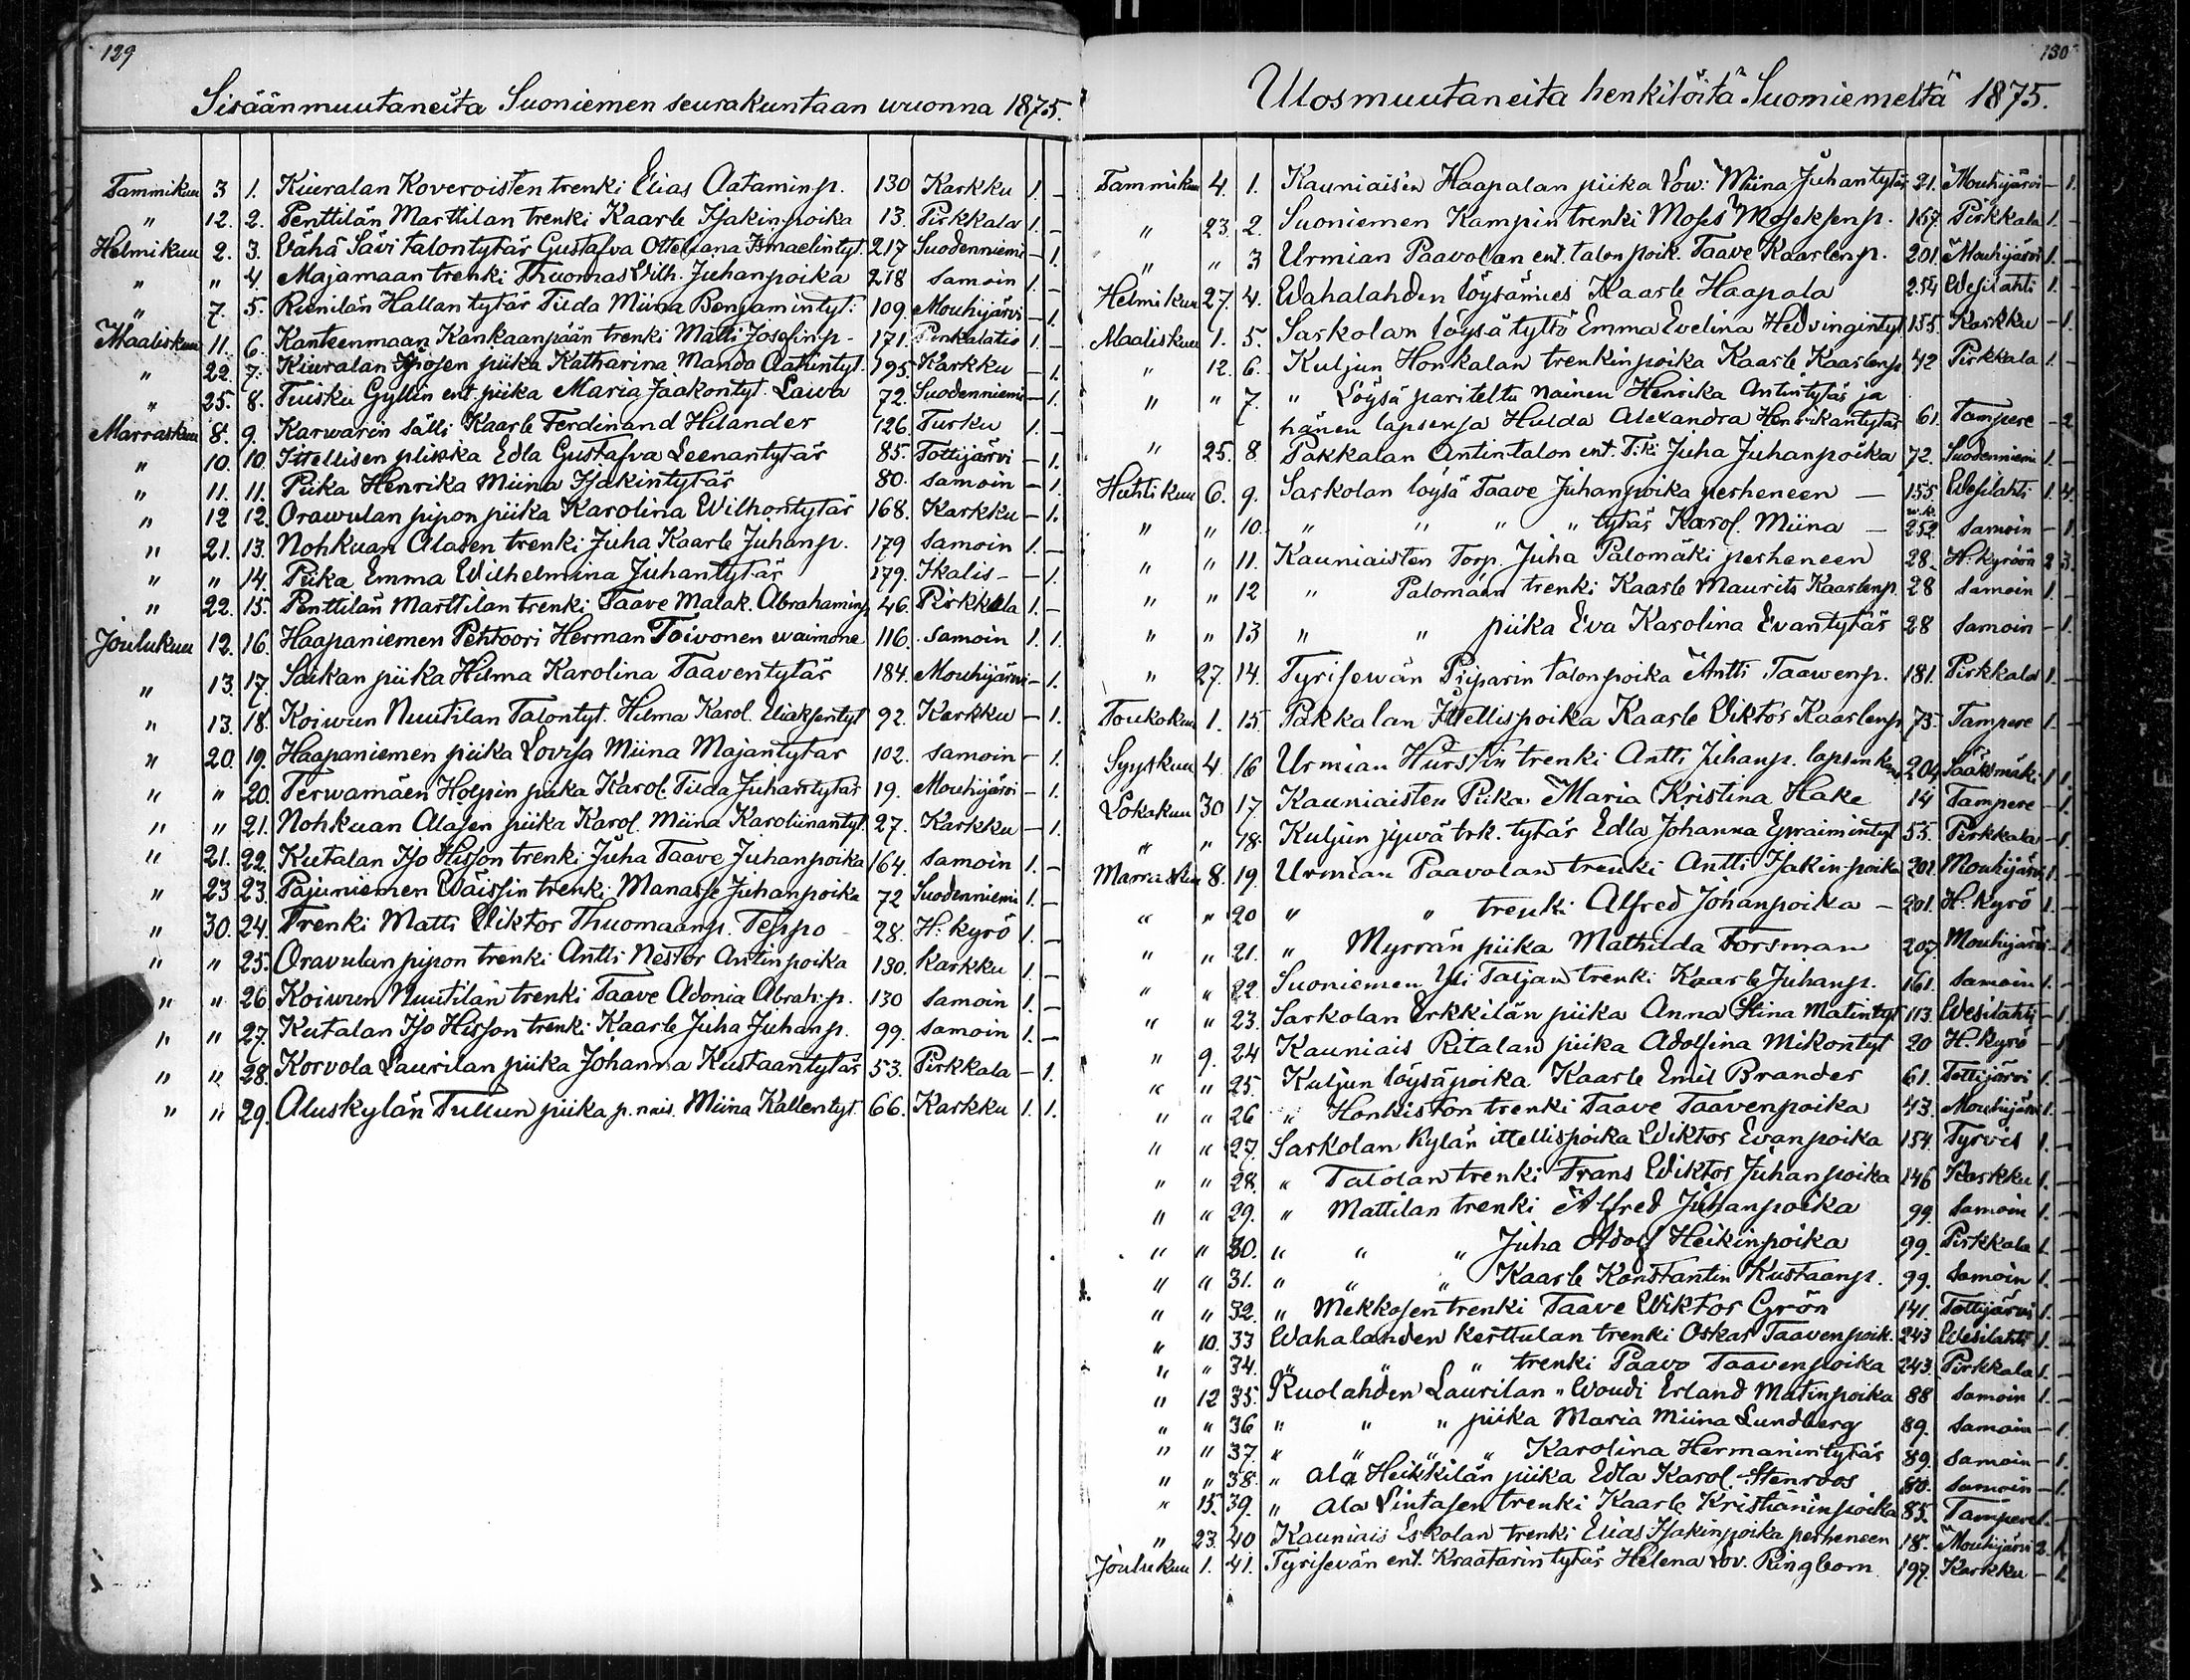 129
Sisäänmuutaneita Suoniemen seurakuntaan wuonna 1875.
Tammikuu 3 1. Kiuralan Koveroisten trenki Elias Aatamin p. 130 Karkku 1. –
" 12. 2. Penttilän Marttilan trenki Kaarle Isakin poika 13. Pirkkala 1. –
Helmikuu 2. 3. Vähä Sävi talontytär Gustafva Otteliana Ismaelintyt. 217 Suodenniemi – 1.
" " 4. Majamaan trenki Thuomas Wilh. Juhanpoika 218 samoin 1. –
" 7. 5. Runilän Hallan tytär Tiida Miina Benjamintyt: 109. Mouhijärvi – 1.
Maaliskuu 11. 6. Kanteenmaan Kankaanpään trenki Matti Josefin p. 171. Punkalatio 1. –
" 22. 7. Kiuralan piika Katharina Manda Aatuntyt. 195. Karkku – 1.
" 25. 8. Tuisku Gyllin ent. piika Maria Jaakontyt. Lawa 72. Suodenniemi – 1.
Marraskuu 8. 9. Karwarin sälli Kaarle Ferdinand Hilander 126. Turku 1. –
" 10. 10. Ittellisen plikka Edla Gustafva Leenantytär 85. Tottijärvi – 1.
" 11. 11. Piika Henrika Miina Isakintytär 80. samoin – 1.
" 12 12. Orawulan pipon piika Karolina Wilhontytär 168. Karkku – 1.
" 21. 13. Nohkuan Alasen trenki Juha Kaarle Juhanp. 179 samoin 1. –
" " 14. Piika Emma Wilhelmina Juhantytär 179. Ikalis – – 1.
" 22. 15. Penttilän Marttilan trenki Taave Malak. Abrahaminp 46. Pirkkala 1. –
Joulukuu 12. 16. Haapaniemen Pehtoori Herman Toivonen waimone 116. samoin 1. 1.
" 13. 17. Saikan piika Hilma Karolina Taaventytär 184. Mouhijärvi – 1.
" 13. 18. Koiwun Nuutilan Talontyt. Hilma Karol. Eliaksentyt 92. Karkku – 1.
" 20. 19. Haapaniemen piika Lovisa Miina Majantytar 102. samoin – 1.
" " 20. Terwamäen Holpin piika Karol. Tiida Juhantytär 19. Mouhijärvi – 1.
" " 21. Nohkuan Alasen piika Karol. Miina Karoliinantyt. 27. Karkku – 1.
" 21. 22. Kutalan Iso Hisson trenki Juha Taave Juhanpoika 164. samoin 1. –
" 23 23. Pajuniemen Wäissin trenki Manasse Juhanpoika 72 Suodenniemi 1. –
" 30. 24. Trenki Matti Wiktor Thuomaanp. Teppo 28. H. kyrö 1. –
" " 25. Oravulan pipon trenki Antti Nestor Antinpoika 130. Karkku 1. –
" " 26. Koiwun Nuutilan trenki Taave Adonia Abrah. p. 130 samoin 1. –
" " 27. Kutalan Iso Hisson trenki Kaarle Juha Juhanp. 99. samoin 1. –
" " 28. Korvola Laurilan piika Johanna Kustaantytär 53. Pirkkala – 1.
" " 29. Aluskylän Tullun piika p. nais. Miina Kallentyt. 66. Karkku 1. 1.
130
Ulosmuutaneita henkilöitä Suoniemeltä 1875.
Tammikuu 4. 1. Kauniaisen Haapalan piika Low: Miina Juhantytär 21. Mouhijärvi – 1.
" 23. 2. Suoniemen Kampin trenki Moses Moseksen p. 167. Pirkkala 1. –
" " 3 Urmian Paavolan ent. talon poik. Taave Kaarlen p. 201. Mouhijärvi 1. –
Helmikuu 27. 4. Wahalahden löysämies Kaarle Haapala 254 Wesilahti 1. –
Maaliskuu 1. 5. Sarkolan löysä tyttö Emma Evelina Hedvingintyt 155. Karkku – 1.
" 12. 6. Kuljun Honkalan trenkinpoika Kaarle Kaarlenp 42 Pirkkala 1. –
" " 7. " Löysä pariteltu nainen Henrika Antintytär ja
hänen lapsensa Hulda Alexandra Henrikantytär 61. Tampere – 2
" 25. 8. Pakkalan Antin talon ent. T:ki Juha Juhanpoika 72. Suodenniemi 1. –
Huhtikuu 6. 9. Sarkolan löysä Taave Juhanpoika perheneen – 155 Wesilahti 1. 4.
" " 10. " " " " tytär Karol. Miina – 252 samoin – 1
" " 11. Kauniaisten Torp. Juha Palomäki perheneen 28. H: kyröön 2 3.
" " 12 " Palomäen trenki Kaarle Maurits Kaarlenp. 28 samoin 1. –
" " 13 " " piika Eva Karolina Evantytär 28 samoin – 1.
" 27. 14. Tyrisewän Piiparin talonpoika Antti Taawenp. 181. Pirkkala 1. –
Toukokuu 1. 15 Pakkalan Ittellispoika Kaarle Viktor Kaarlenp 75. Tampere 1. –
Syyskuu 4. 16 Urmian Hurssin trenki Antti Juhanp. lapsinkens 204 Sääksmäki 1. 1.
Lokakuu 30 17. Kauniaisten Piika Maria Kristina Hake 14 Tampere – 1.
" " 18. Kuljun jywä trk. tytär Edla Johanna Epraimintyt 55. Pirkkala – 1.
Marraskuu 8. 19. Urmian Paavolan trenki Antti Isakin poika 201. Mouhijärvi 1. –
" " 20 " " trenki Alfred Johanpoika – 201. H. kyrö 1. –
" " 21. " Myrrän piika Mathilda Forsman 207. Mouhijärvi – 1.
" " 22. Suoniemen Yli Taljan trenki Kaarle Juhanp. 161. samoin 1. –
" " 23. Sarkolan Erkkilän piika Anna Stina Matintyt 113. Wesilahti – 1.
" 9. 24 Kauniais Ritalan piika Adolfina Mikontyt 20 H. kyrö – 1
" " 25. Kuljun löysäpoika Kaarle Emil Brander 61. Tottijärvi 1. –
" " 26 " Honkiston trenki Taave Taavenpoika 43. Mouhijärvi 1. –
" " 27. Sarkolan Kylän ittellispoika Wiktor Evanpoika 154. Tyrvis 1. –
" " 28. " Talolan trenki Frans Wiktor Juhanpoika 146 Karkku 1. –
" " 29. " Mattilan trenki Alfred Juhanpoika 99. samoin 1. –
" " 30. " " " Juha Adolf Heikinpoika 99. Pirkkala 1. –
" " 31. " " " Kaarle Konstantin Kustaanp. 99. samoin 1. –
" " 32. " Mekkosen trenki Taave Wiktor Grön 141. Tottijärvi 1. –
" 10. 33 Wahalahden Kerttulan trenki Oskar Taavenpoik. 243 Wesilahti 1. –
" " 34. " " " trenki Paavo Taavenpoika 243. Pirkkala 1. –
" 12 35. Kuolahden Laurilan " Woudi Erland Matinpoika 88 samoin 1. –
" " 36 " " " piika Maria Miina Lundberg 89. samoin – 1.
" " 37. " " " " Karolina Hermanintytär 89. samoin – 1.
" " 38. " Ala Heikkilän piika Edla Karol. Stenroos 80. samoin – 1.
" 15. 39. " Ala Lintasen trenki Kaarle Kristianinpoika 85. Tampere 1. –
" 23. 40 Kauniais Eskolan trenki Elias Isakinpoika perheneen 18. Mouhijärvi 2. 1.
Joulukuu 1. 41. Tyrisevän ent. Kraatarin tytär Helena Lov. Ringbom 197. Karkku – 1.